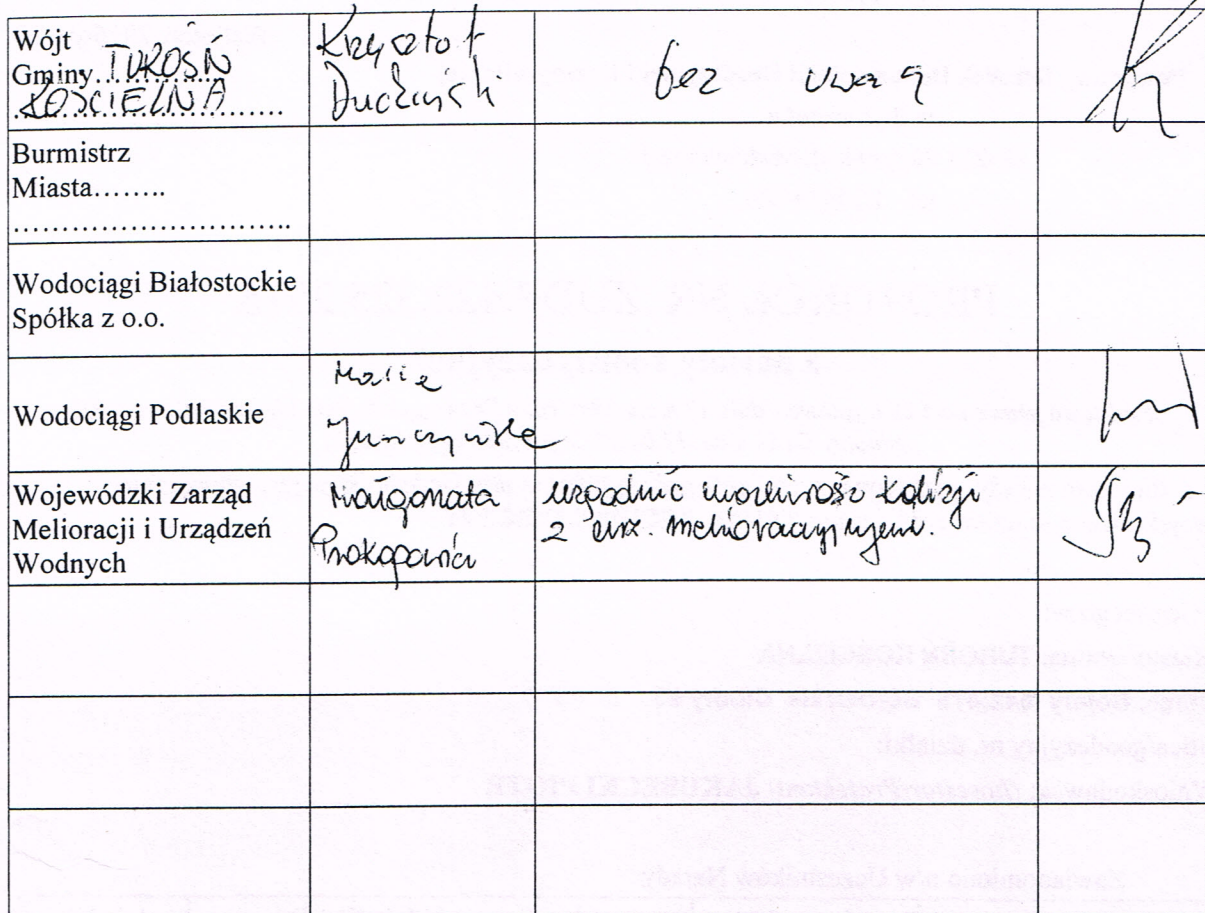 Wójt
Gminy.............. TUROŚŃ
KOŚCIELNA
Krzysztof
bez uwag
Burmistrz
Miasta........
..............................
Wodociągi Białostockie
Spółka z o.o.
Wodociągi Podlaskie
Maria
Wojewódzki Zarząd
Melioracji i Urządzeń
Wodnych
Małgorzata
Prokopowicz
uzgodnić możliwość kolizji
z urz. melioracyjnymi.